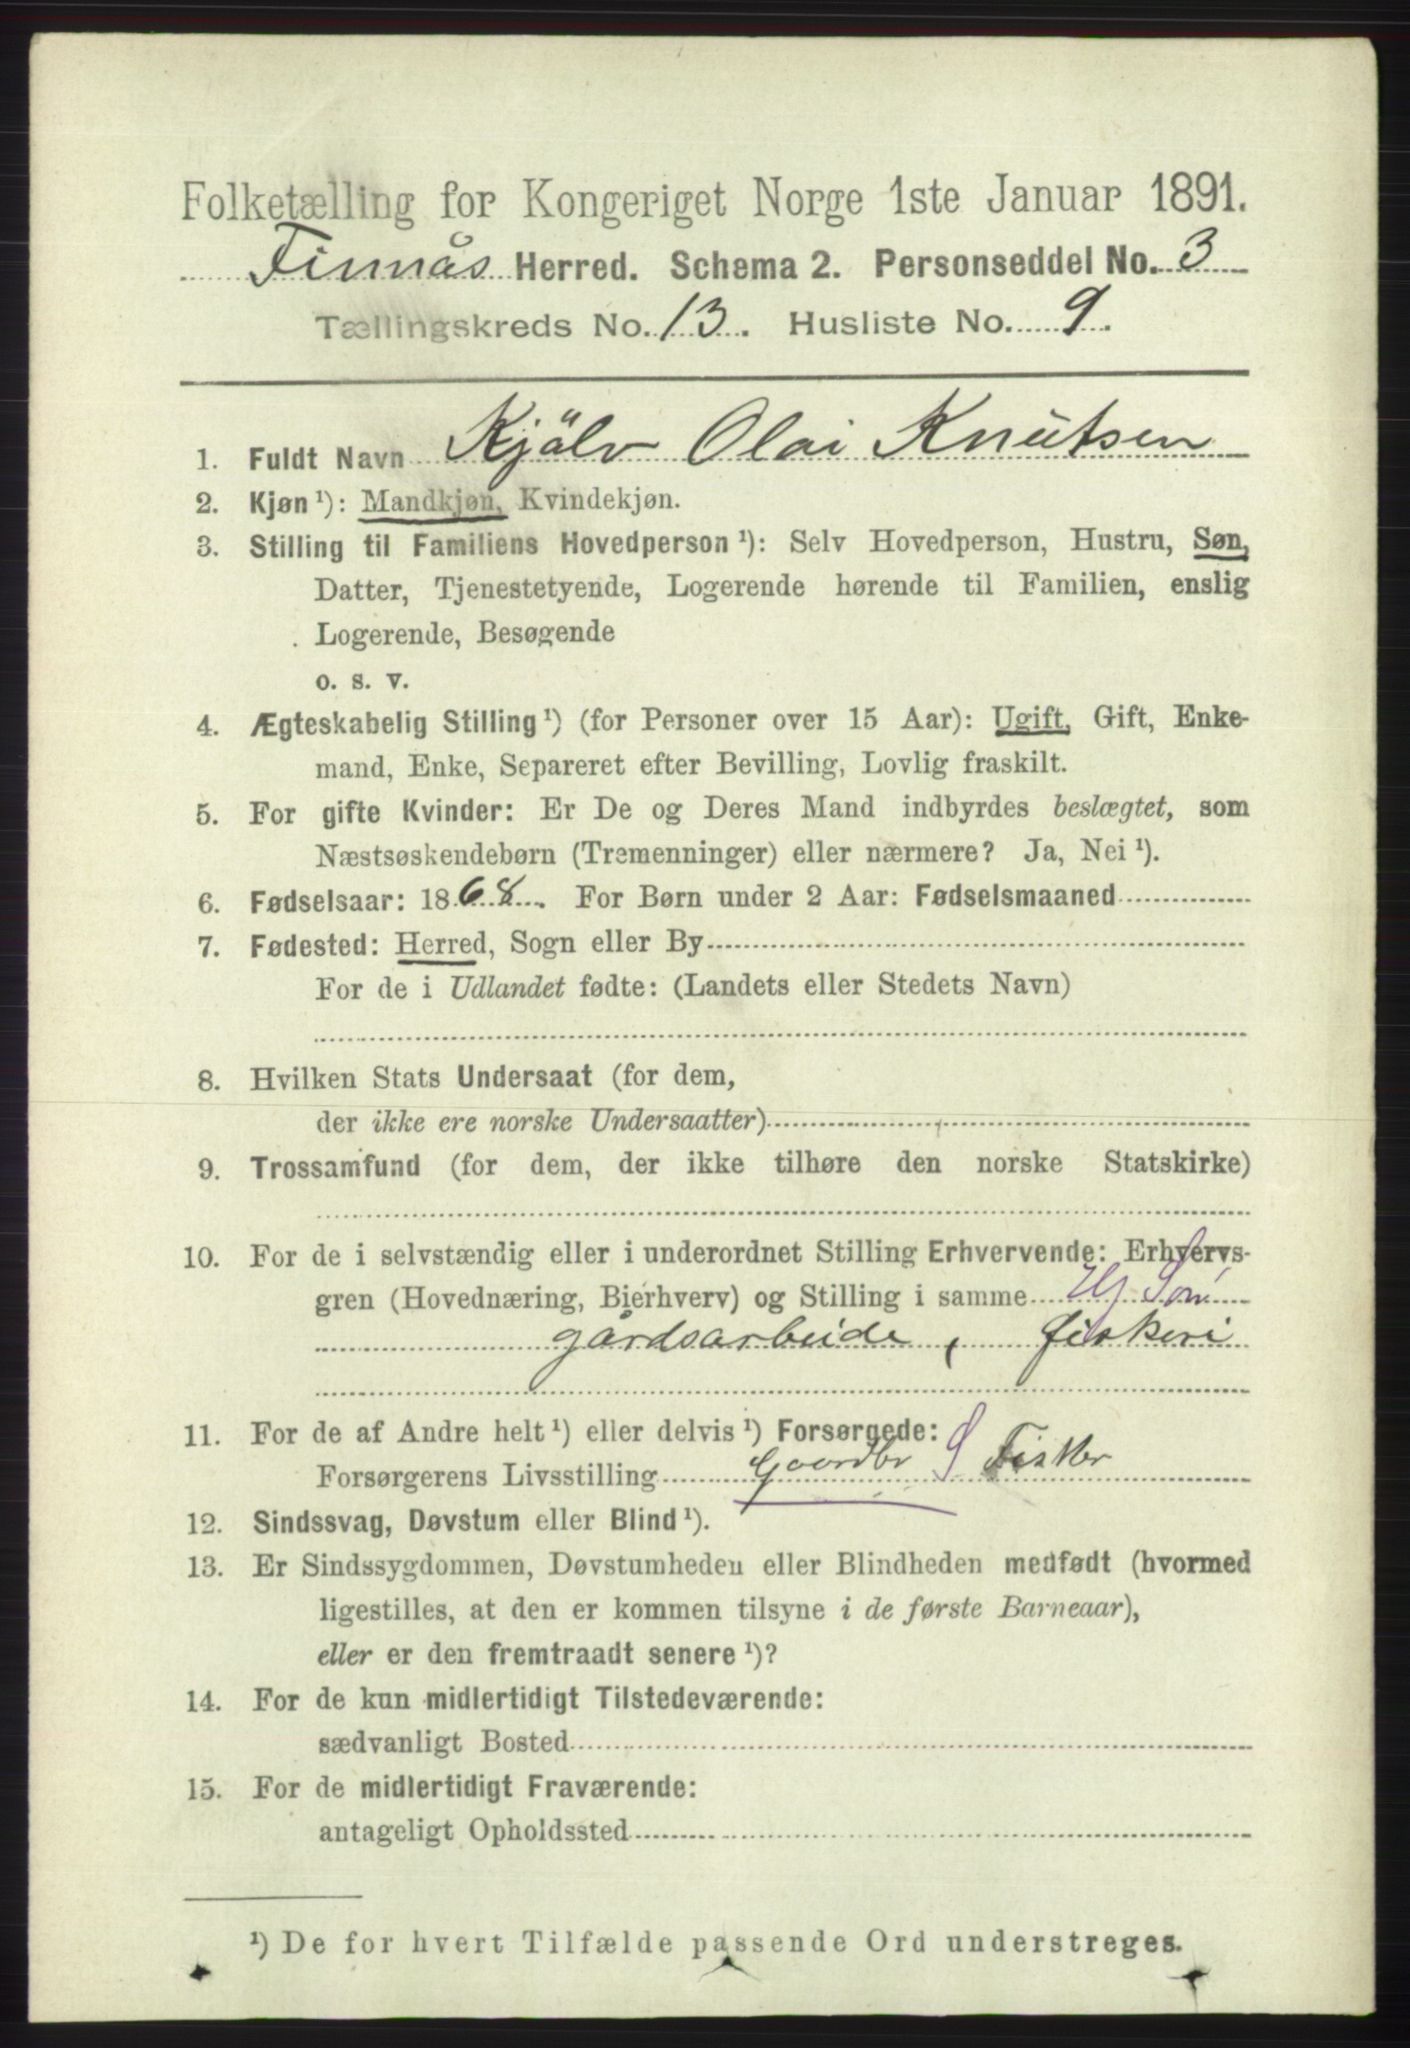 Folketælling for Kongeriget Norge 1ste Januar 1891.
Finnås Herred. Schema 2. Personseddel No. 3
Tællingskreds No. 13. Husliste No. 9.
1. Fuldt Navn Kjölv Olai Knutsen
2. Kjøn ¹): Mandkjøn, Kvindekjøn.
3. Stilling til Familiens Hovedperson ¹): Selv Hovedperson, Hustru, Søn,
Datter, Tjenestetyende, Logerende hørende til Familien, enslig
Logerende, Besøgende
o. s. v.
4. Ægteskabelig Stilling ¹) (for Personer over 15 Aar): Ugift, Gift, Enke-
mand, Enke, Separeret efter Bevilling, Lovlig fraskilt.
5. For gifte Kvinder: Er De og Deres Mand indbyrdes beslægtet, som
Næstsøskendebørn (Tremenninger) eller nærmere? Ja, Nei ¹).
6. Fødselsaar: 1868. For Børn under 2 Aar: Fødselsmaaned
7. Fødested: Herred, Sogn eller By
For de i Udlandet fødte: (Landets eller Stedets Navn)
8. Hvilken Stats Undersaat (for dem,
der ikke ere norske Undersaatter)
9. Trossamfund (for dem, der ikke tilhøre den norske Statskirke)
10. For de i selvstændig eller i underordnet Stilling Erhvervende: Erhvervs-
gren (Hovednæring, Bierhverv) og Stilling i samme
gårdsarbeide, fiskeri
11. For de af Andre helt ¹) eller delvis ¹) Forsørgede:
Forsørgerens Livsstilling Gaardbr S Fisker
12. Sindssvag, Døvstum eller Blind ¹).
13. Er Sindssygdommen, Døvstumheden eller Blindheden medfødt (hvormed
ligestilles, at den er kommen tilsyne i de første Barneaar),
eller er den fremtraadt senere ¹)?
14. For de kun midlertidigt Tilstedeværende:
sædvanligt Bosted
15. For de midlertidigt Fraværende:
antageligt Opholdssted
¹) De for hvert Tilfælde passende Ord understreges.